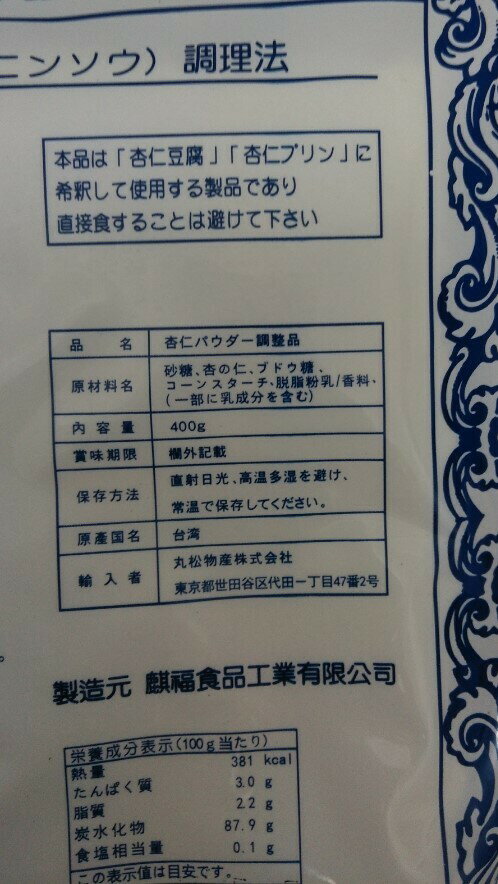 ニンソウ）調理法
本品は「杏仁豆腐」「杏仁プリン」に
希釈して使用する製品であり
直接食することは避けて下さい
品名 杏仁パウダー調整品
原材料名 砂糖、杏の仁、ブドウ糖、
コーンスターチ、脱脂粉乳/香料、
(一部に乳成分を含む)
内容量 400g
賞味期限 欄外記載
保存方法 直射日光、高温多湿を避け、
常温で保存してください。
原産国名 台湾
輸入者 丸松物産株式会社
東京都世田谷区代田一丁目47番2号
。
製造元 麒福食品工業有限公司
栄養成分表示(100g当たり)
熱量 381 kcal
たんぱく質 3.0 g
脂質 2.2 g
炭水化物 87.9 g
食塩相当量 0.1 g
この表示値は目安です。